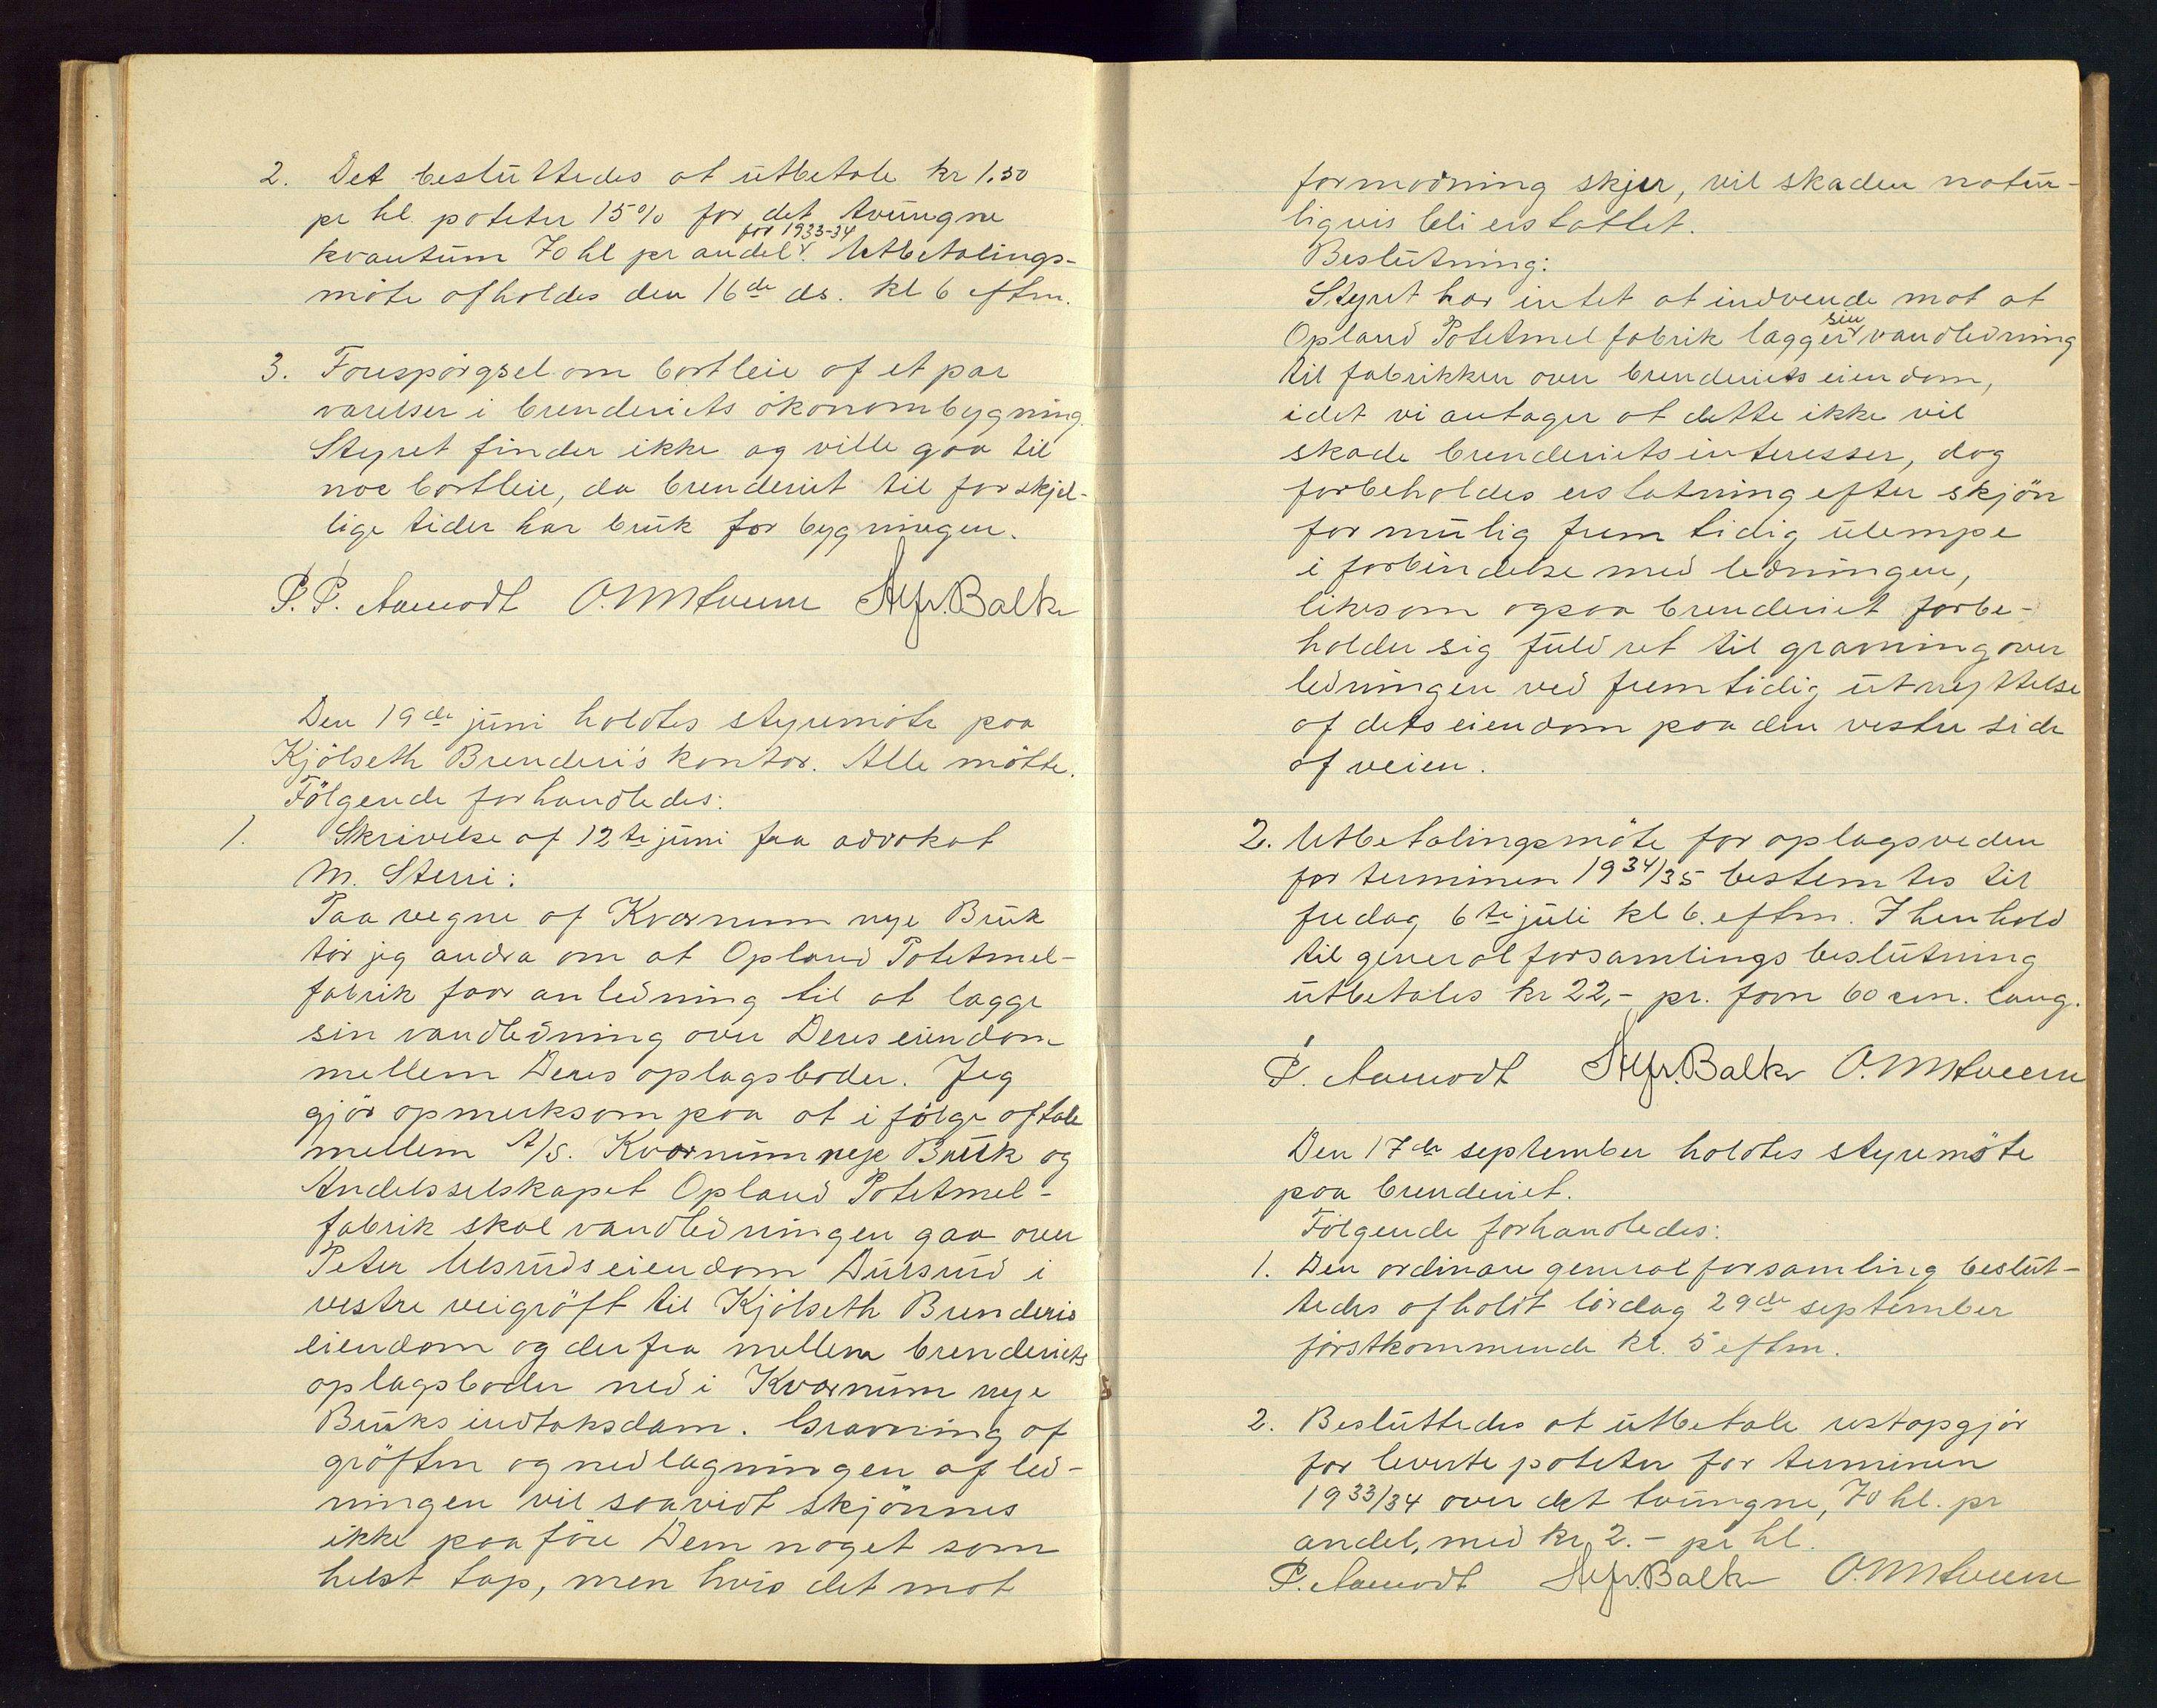 2. Det besluttedes at utbetale kr 1.50
pr hl. poteter 15% for det tvungne
for 1933-34
kvantum 70 hl pr andel v. Utbetalings-
möte afholdes den 16de ds. kl 6 eftm.
3. Forespörgsel om bortleie af et par
værelser i brenderiets ökonombygning.
Styret finder ikke og ville gaa til
noe bortleie, da brenderiet til forskjel-
lige tider har bruk for bygningen.
P. P. Aamodt Alfr. Balke
Den 19de juni holdtes styremöte paa
Kjölseth Brenderi's kontor. Alle mötte.
Fölgende forhandledes:
1. Skrivelse af 12te juni fra advokat
M. Sterri:
Paa vegne af Kværnum nye Bruk
tör jeg andra om at Opland Potetmel-
fabrik faar anledning til at lægge
sin vandledning over Deres eiendom
mellem Deres oplagsboder. Jeg
gjör opmerksom paa at i fölge aftale
mellem A/S. Kværnum nye Bruk og
Andelsselskapet Opland Potetmel-
fabrik skal vandledningen gaa over
Peter Ulsruds eiendom Dulsrud i
vestre veigröft til Kjölseth Brenderis
eiendom og derfra mellem brenderiets
oplagsboder ned i Kværnum nye
Bruks indtaksdam. Gravning af
gröften og nedlægningen af led-
ningen vil saavidt skjönnes
ikke paaföre Dem noget som
helst tap, men hvis det mot
formodning skjer, vil skaden natur-
ligvis bli erstattet.
Beslutning:
Styret har intet at indvende mot at
sin
Opland Potetmelfabrik lægger v vandledning
til fabrikken over brenderiets eiendom,
idet vi antager at dette ikke vil
skade brenderiets interesser, dog
forbeholdes erstatning efter skjön
for mulig fremtidig ulempe
i forbindelse med ledningen,
likesom ogsaa brenderiet forbe-
holder sig fuld ret til gravning over
ledningen ved fremtidig utnyttelse
af dets eiendom paa den vestre side
af veien.
2. Utbetalingsmöte for oplagsveden
for terminen 1934/35 bestemtes til
fredag 6te juli kl 6. eftm. I henhold
til generalforsamlings beslutning
utbetales kr 22,- pr. favn 60 cm. lang.
P. Aamodt Alfr. Balke
Den 17de september holdtes styremöte
paa brenderiet.
Fölgende forhandledes:
1. Den ordinære generalforsamling beslut-
tedes afholdt lördag 29de september
förstkommende kl. 5 eftm.
2. Besluttedes at utbetale restopgjör
for leverte poteter for terminen
1933/34 over det tvungne, 70 hl. pr
andel, med kr 2.- pr hl.
P. Aamodt Alfr. Balke